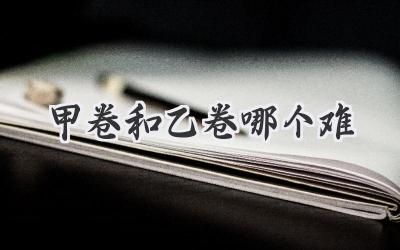 甲卷和乙卷哪个难